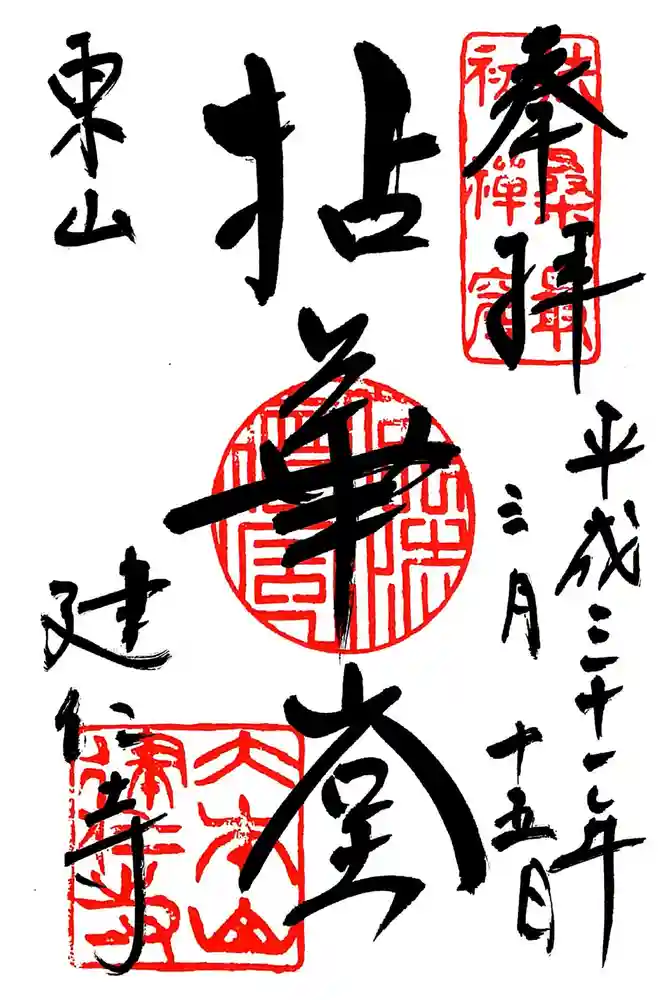 奉拝
平成三十一年
三月
十五日
拈華堂
東山
建仁寺
扶桑最
初禅窟
大本山
建仁寺